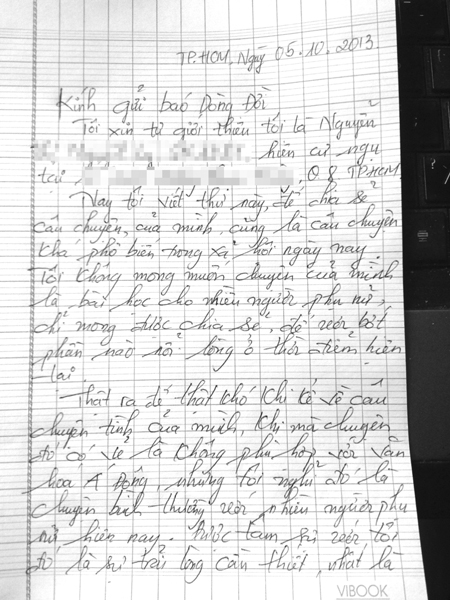 TP.HCM, Ngày 05.10.2013.
Kính gửi báo Dòng Đời
Tôi xin tự giới thiệu tôi là Nguyễn
hiện cư ngụ
tại, Q 8 TP.HCM
Nay tôi viết thư này, để chia sẻ
câu chuyện của mình, cũng là câu chuyện
khá phổ biến trong xã hội ngày nay.
Tôi không mong muốn chuyện của mình
là bài học cho nhiều người phụ nữ,
chỉ mong được chia sẻ, để vơi bớt
phần nào nỗi lòng ở thời điểm hiện
-tại.
Thật ra để thật khó khi kể về câu
chuyện tình của mình, khi mà chuyện
đó có vẻ là không phù hợp với văn
hoá Á Đông, nhưng tôi nghĩ đó là
chuyện bình thường với nhiều người phụ
nữ hiện nay. Được tâm sự với tôi
đó là sự trải lòng cần thiết, nhất là
VIBOOK